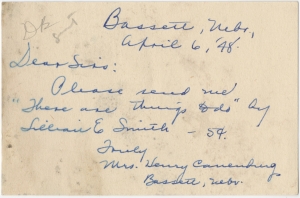 Bassett, Nebr,
April 6, '48
Dear Sirs:
Please send me
"There are things to do" by
Lillian E Smith - 5¢.
Truly
Mrs. Henry
Bassett, Nebr.